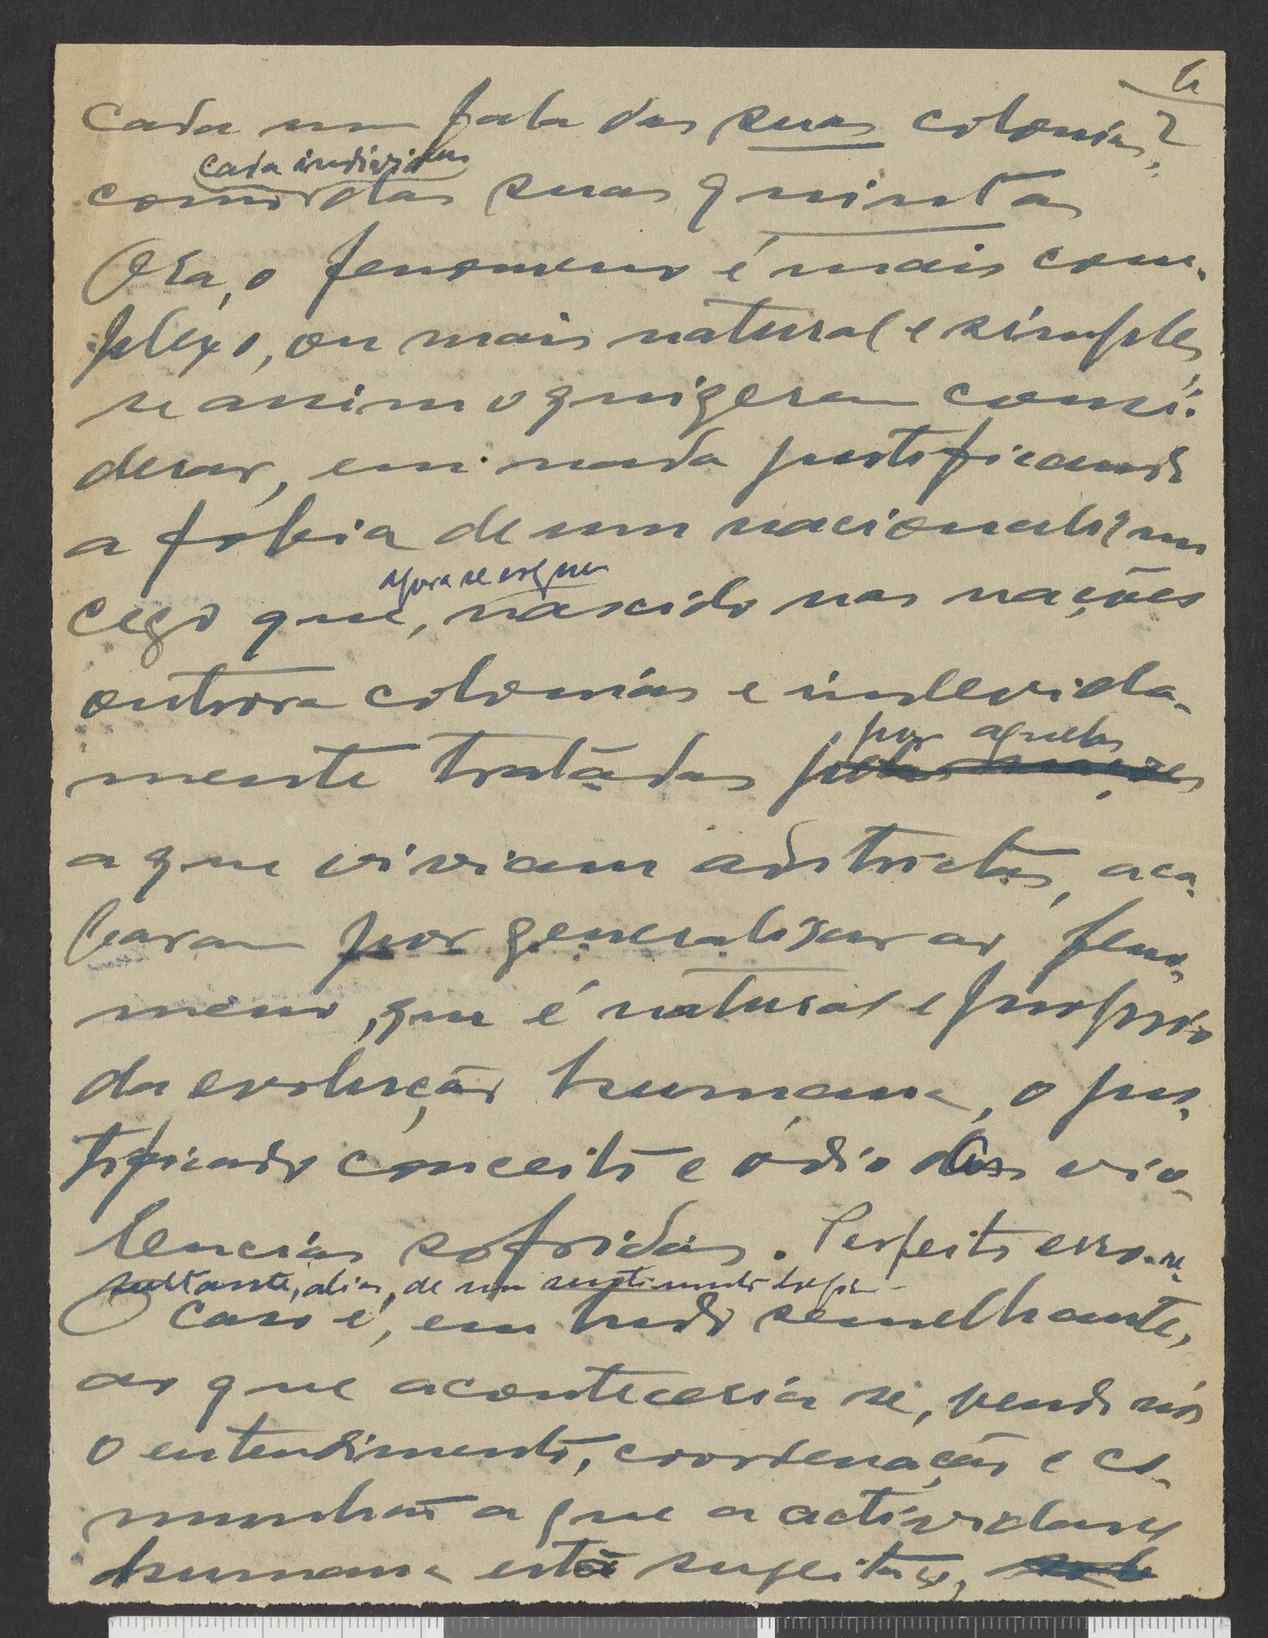 cada um fala das suas colonias,
cada individuo
como das suas quintas
Ora, o fenomeno é mais com-
plexo, ou mais natural e simples,
se assim o quizerem consi-
derar, em nada justificando
a fobia de um nacionalismo
agora se ergue
cego que, nascido nas nações
outrora colonias e indevida-
por aquelas
mente tratadas pelas nações
a que viviam adstrictas, aca-
baram por generalisar ao feno-
meno, que é natural e proprio
da evolução humana, o jus-
tificado conceito e ódio das vio-
lencias sofridas. Perfeito erro re-
sultante, alias, de um sentimento
O caso é, em tudo semelhante,
ao que aconteceria se, vendo nós
o entendimento, coordenação e co-
munhão a que a actividade
humana está sugeita,